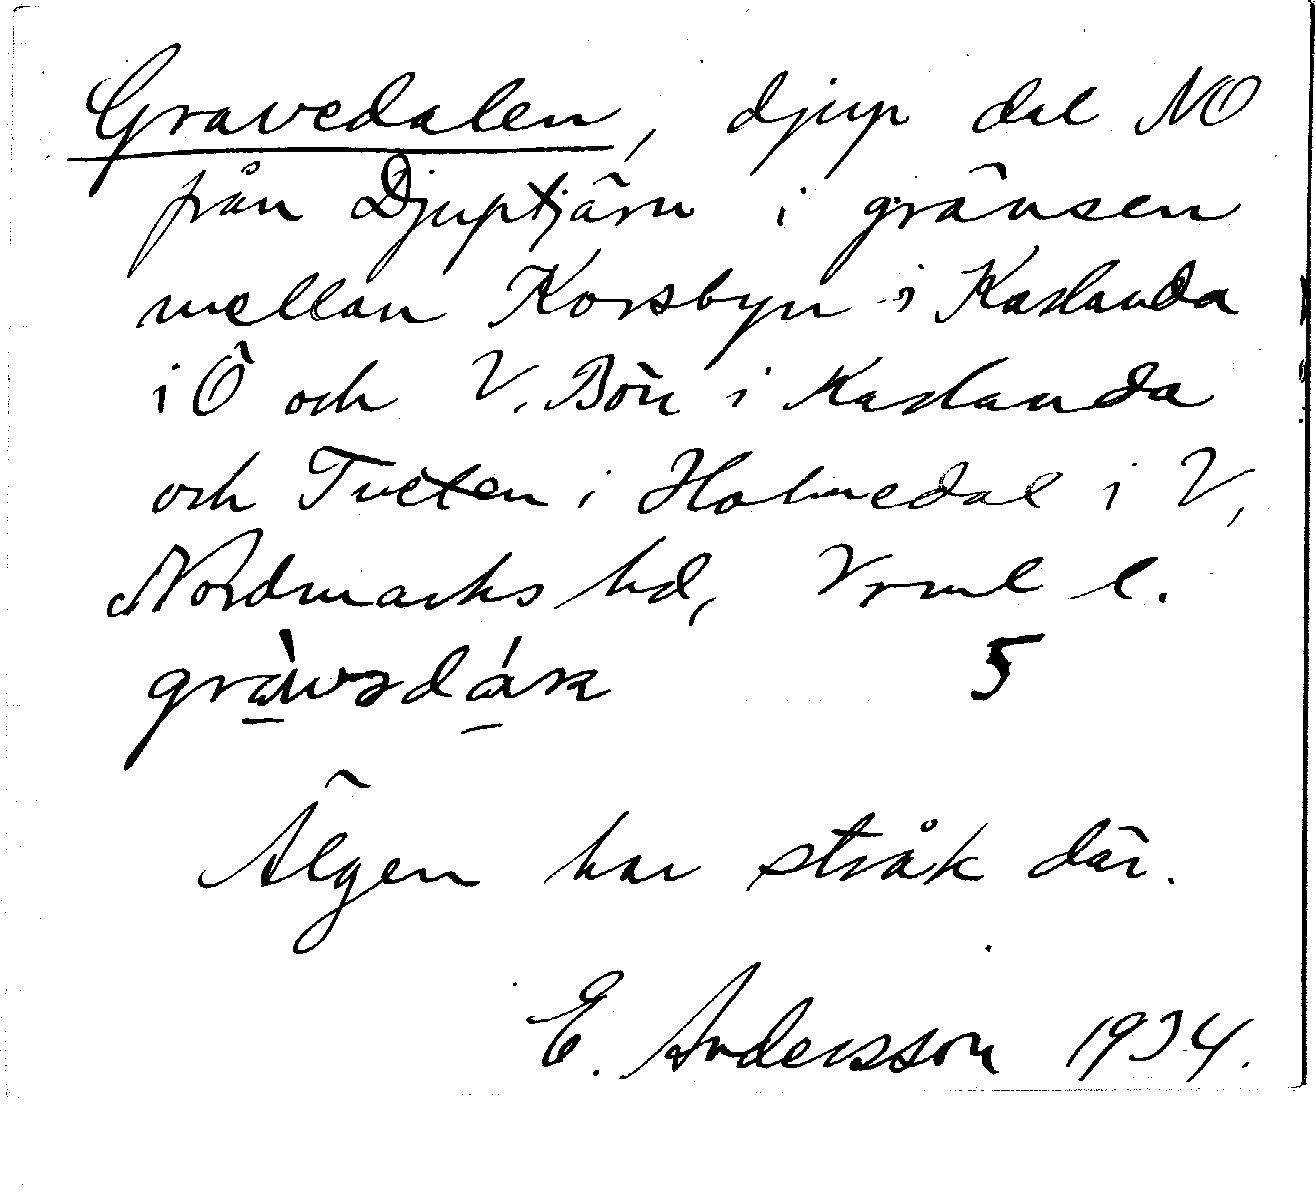 Gravedalen, djup dal NO
från Djuptjärn i gränsen
mellan Korsbyn i Karlanda
i Ö och V. Bön i Karlanda
och Tveten i Holmedal i V,
Nordmarks hd, Vrml l.
5
Älgen har stråk där.
E. Andersson 1934.